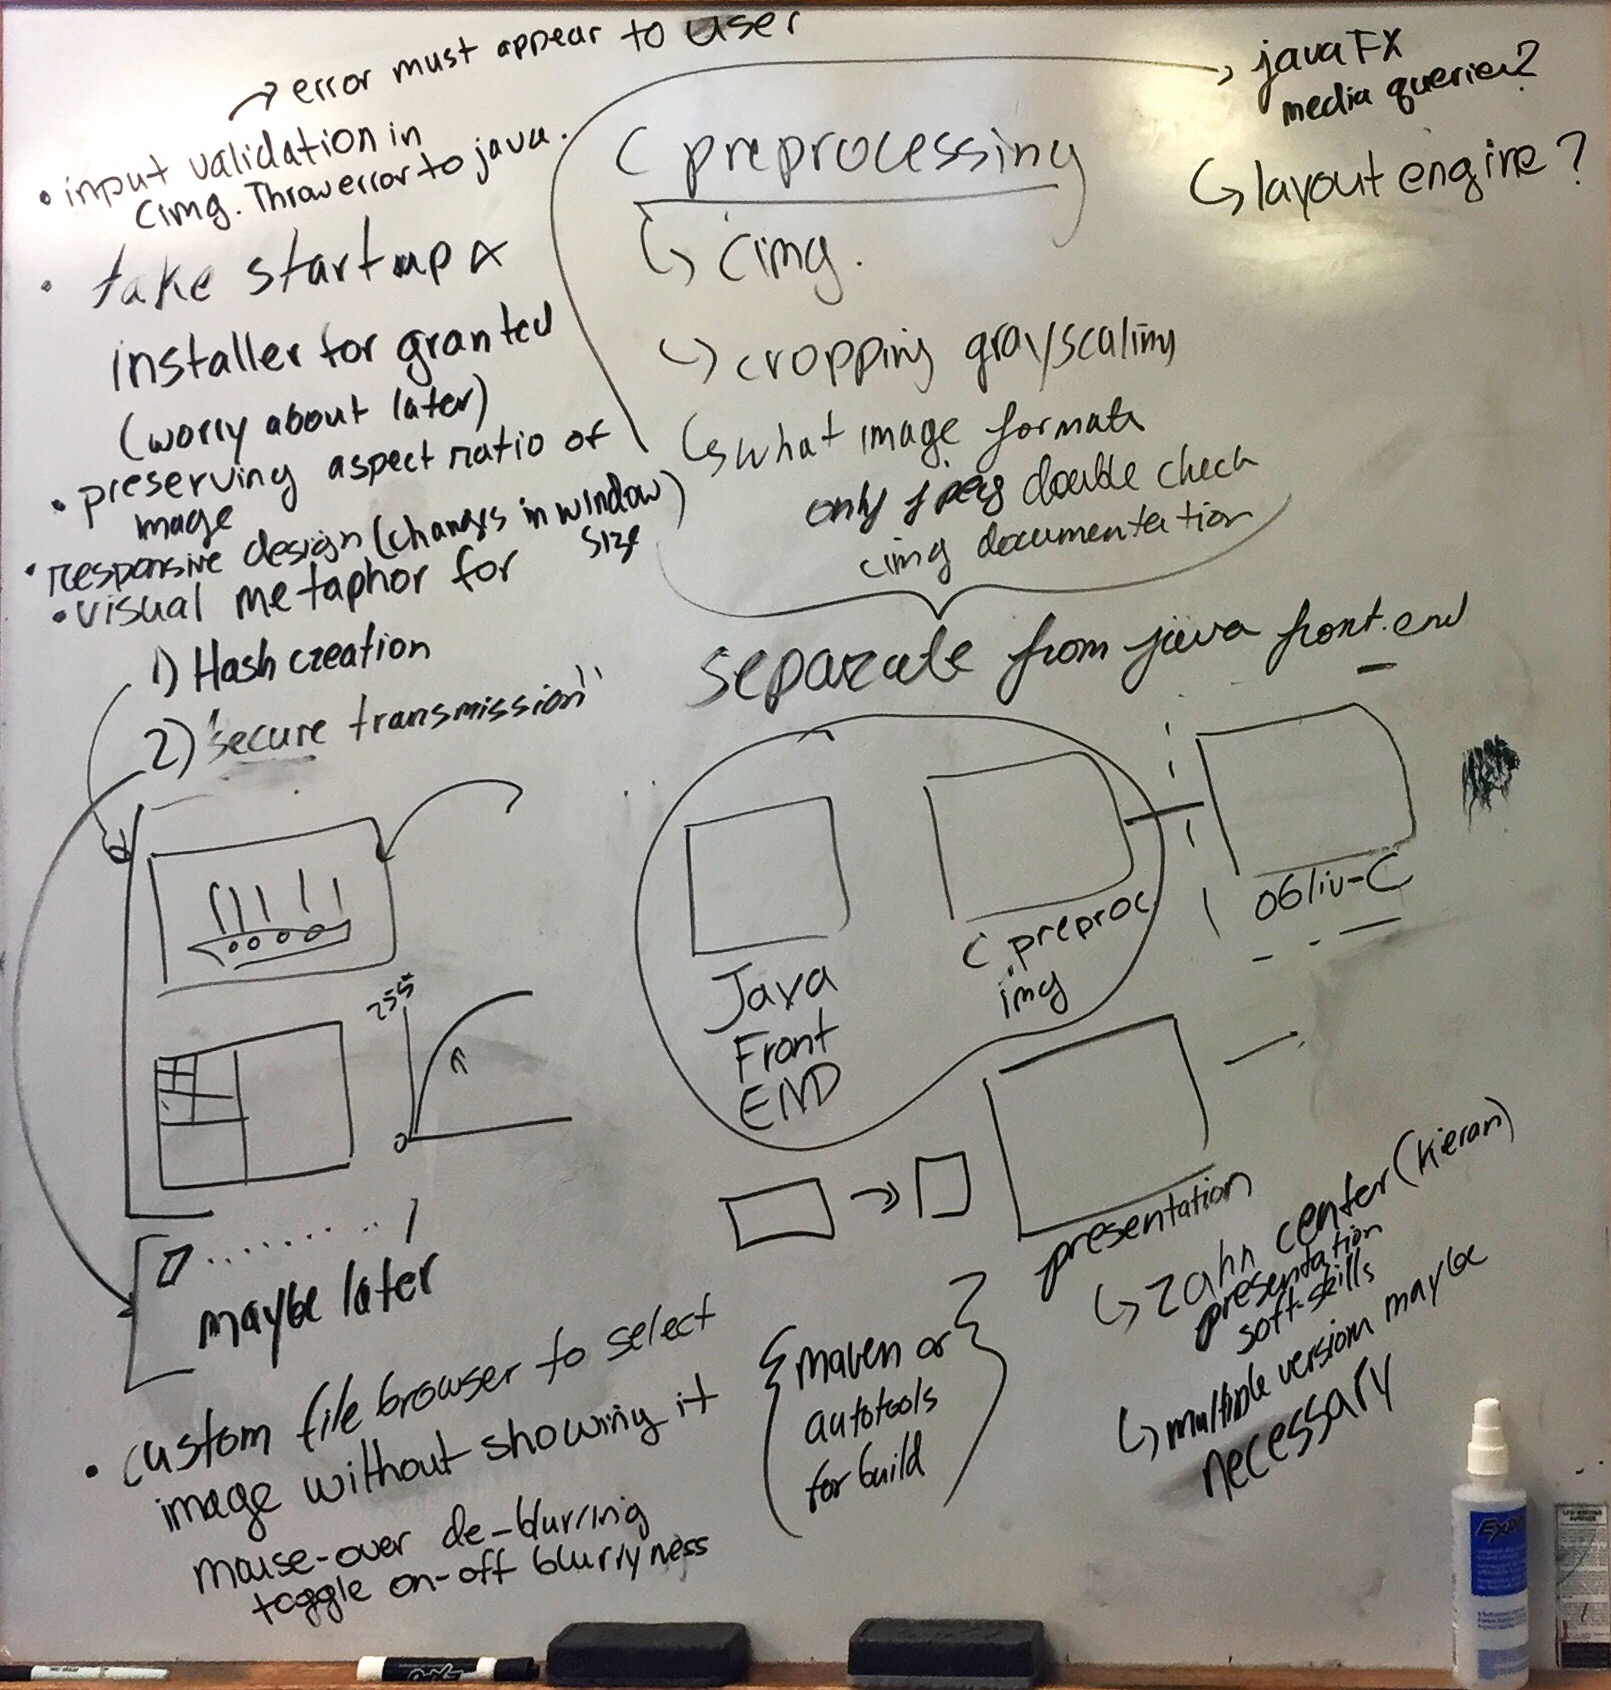 → error must appear to user
• input validation in
Cimg. Throw error to java.
• take startup &
installer for granted
(worry about later)
• preserving aspect ratio of
image
• responsive design (changes in window)
size
• visual metaphor for
1) Hash creation
2) "secure transmission"
255
0
maybe later
• custom file browser to select
image without showing it
mouse-over de-blurring
toggle on-off blurryness
C preprocessing
↳ cimg.
↳ cropping grayscaling
↳ what image formats
only jpeg double check
cimg documentation
separate from java front-end
→ javaFX
media queries?
↳ layout engine?
Java
Front
END
C preproc
img
obliv-C
presentation
↳ zahn center (kieran)
presentation
soft-skills
↳ multiple versions maybe
necessary
{maven or}
autotools
for build
EXPO